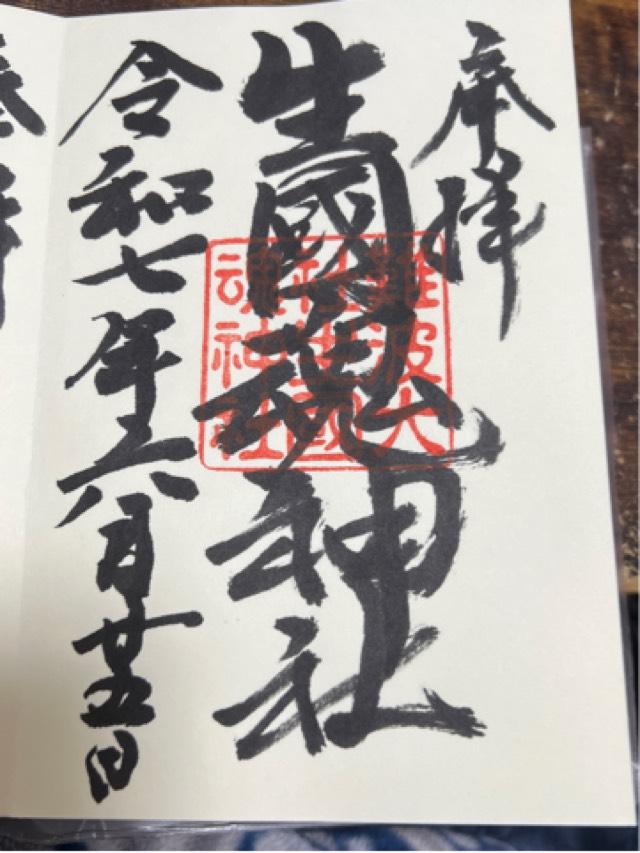 奉拝
生國魂神社
難波大
社生國
魂神社
令和七年六月廿五日